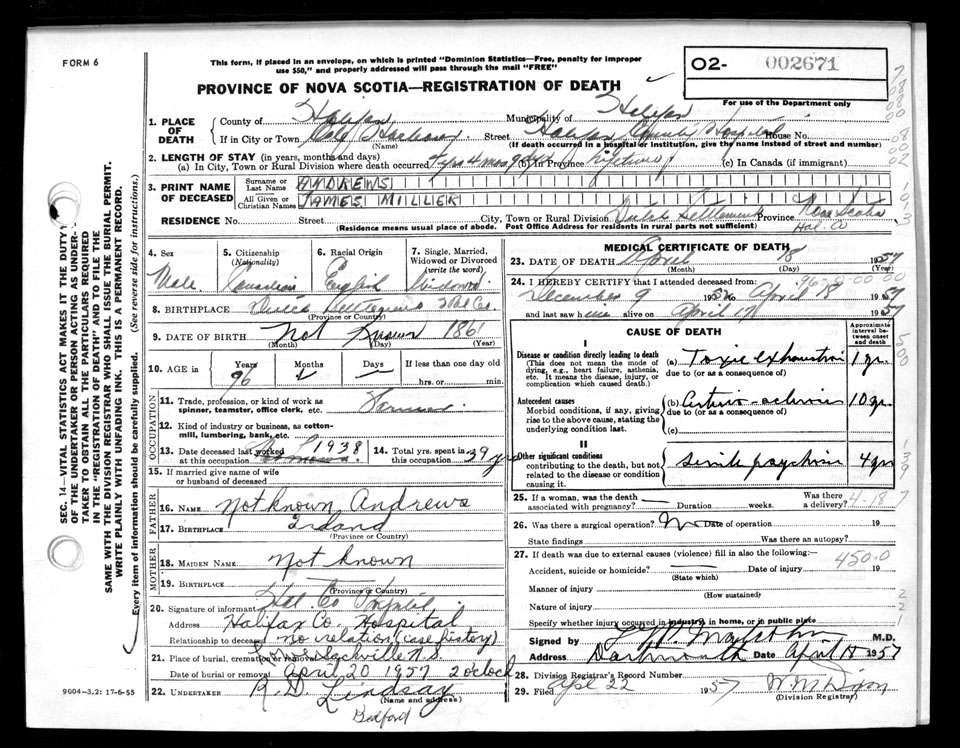 FORM 6
This form, if placed in an envelope, on which is printed "Dominion Statistics—Free, penalty for improper
use $50," and properly addressed will pass through the mail "FREE"
PROVINCE OF NOVA SCOTIA—REGISTRATION OF DEATH
O2- 002671
For use of the Department only
1. PLACE OF DEATH
County of Halifax Municipality of Halifax
If in City or Town Cole Harbour Street Halifax County Hospital House No.
(Name) (If death occurred in a hospital or institution, give the name instead of street and number)
2. LENGTH OF STAY (in years, months and days)
(a) In City, Town or Rural Division where death occurred 4 mos (b) In Province lifetime (c) In Canada (if immigrant)
3. PRINT NAME OF DECEASED
Surname or Last Name ANDREWS
All Given or Christian Names JAMES MILLER
RESIDENCE No. Street City, Town or Rural Division Dutch Settlement Province Nova Scotia
(Residence means usual place of abode. Post Office Address for residents in rural parts not sufficient) Hal. Co
4. Sex Male
5. Citizenship (Nationality) Canadian
6. Racial Origin English
7. Single, Married, Widowed or Divorced (write the word) Widowed
8. BIRTHPLACE Hal Co.
(Province or Country)
9. DATE OF BIRTH Not Known 1861
(Month) (Day) (Year)
10. AGE in Years 96 Months Days If less than one day old
hrs. or min.
OCCUPATION
11. Trade, profession, or kind of work as spinner, teamster, office clerk, etc.
12. Kind of industry or business, as cotton-mill, lumbering, bank, etc.
13. Date deceased last worked at this occupation 1938
14. Total yrs. spent in this occupation 39 yrs
15. If married give name of wife or husband of deceased
FATHER
16. NAME Not known Andrews
17. BIRTHPLACE
(Province or Country)
MOTHER
18. MAIDEN NAME Not known
19. BIRTHPLACE
(Province or Country)
20. Signature of informant Hal. Co. Hospital
Address Halifax Co. Hospital
Relationship to deceased no relation (case history)
21. Place of burial, cremation or removal Sackville N.S.
Date of burial or removal April 20 1957 2 o'clock
22. UNDERTAKER R. D. Lindsay
(Name and address)
Bedford
MEDICAL CERTIFICATE OF DEATH
23. DATE OF DEATH April 18 1957
(Month) (Day) (Year)
24. I HEREBY CERTIFY that I attended deceased from:
December 9 195 to April 18 1957
and last saw him alive on April 17 1957
CAUSE OF DEATH
Approximate interval between onset and death
I
Disease or condition directly leading to death
(This does not mean the mode of dying, e.g., heart failure, asthenia, etc. It means the disease, injury, or complication which caused death.)
(a) Toxic exhaustion 1 yr.
due to (or as a consequence of)
Antecedent causes
Morbid conditions, if any, giving rise to the above cause, stating the underlying condition last.
(b) Arterio-sclerosis 10 yr.
due to (or as a consequence of)
(c)
II
Other significant conditions
contributing to the death, but not related to the disease or condition causing it.
senile psychosis 4 yrs
25. If a woman, was the death associated with pregnancy? Duration weeks. Was there a delivery?
26. Was there a surgical operation? No Date of operation 19
State findings Was there an autopsy?
27. If death was due to external causes (violence) fill in also the following:—
450.0
Accident, suicide or homicide? Date of injury 19
(State which)
Manner of injury
(How sustained)
Nature of injury
Specify whether injury occurred in industry, in home, or in public place
Signed by M.D.
Address Dartmouth Date April 18 1957
28. Division Registrar's Record Number
29. Filed Apl 22 1957
(Division Registrar)
SEC. 14—VITAL STATISTICS ACT MAKES IT THE DUTY
OF THE UNDERTAKER OR PERSON ACTING AS UNDER-
TAKER TO OBTAIN ALL THE PARTICULARS REQUIRED
IN THE "REGISTRATION OF DEATH" AND TO FILE THE
SAME WITH THE DIVISION REGISTRAR WHO SHALL ISSUE THE BURIAL PERMIT.
WRITE PLAINLY WITH UNFADING INK. THIS IS A PERMANENT RECORD.
Every item of information should be carefully supplied. (See reverse side for instructions.)
9004-3.2: 17-6-55